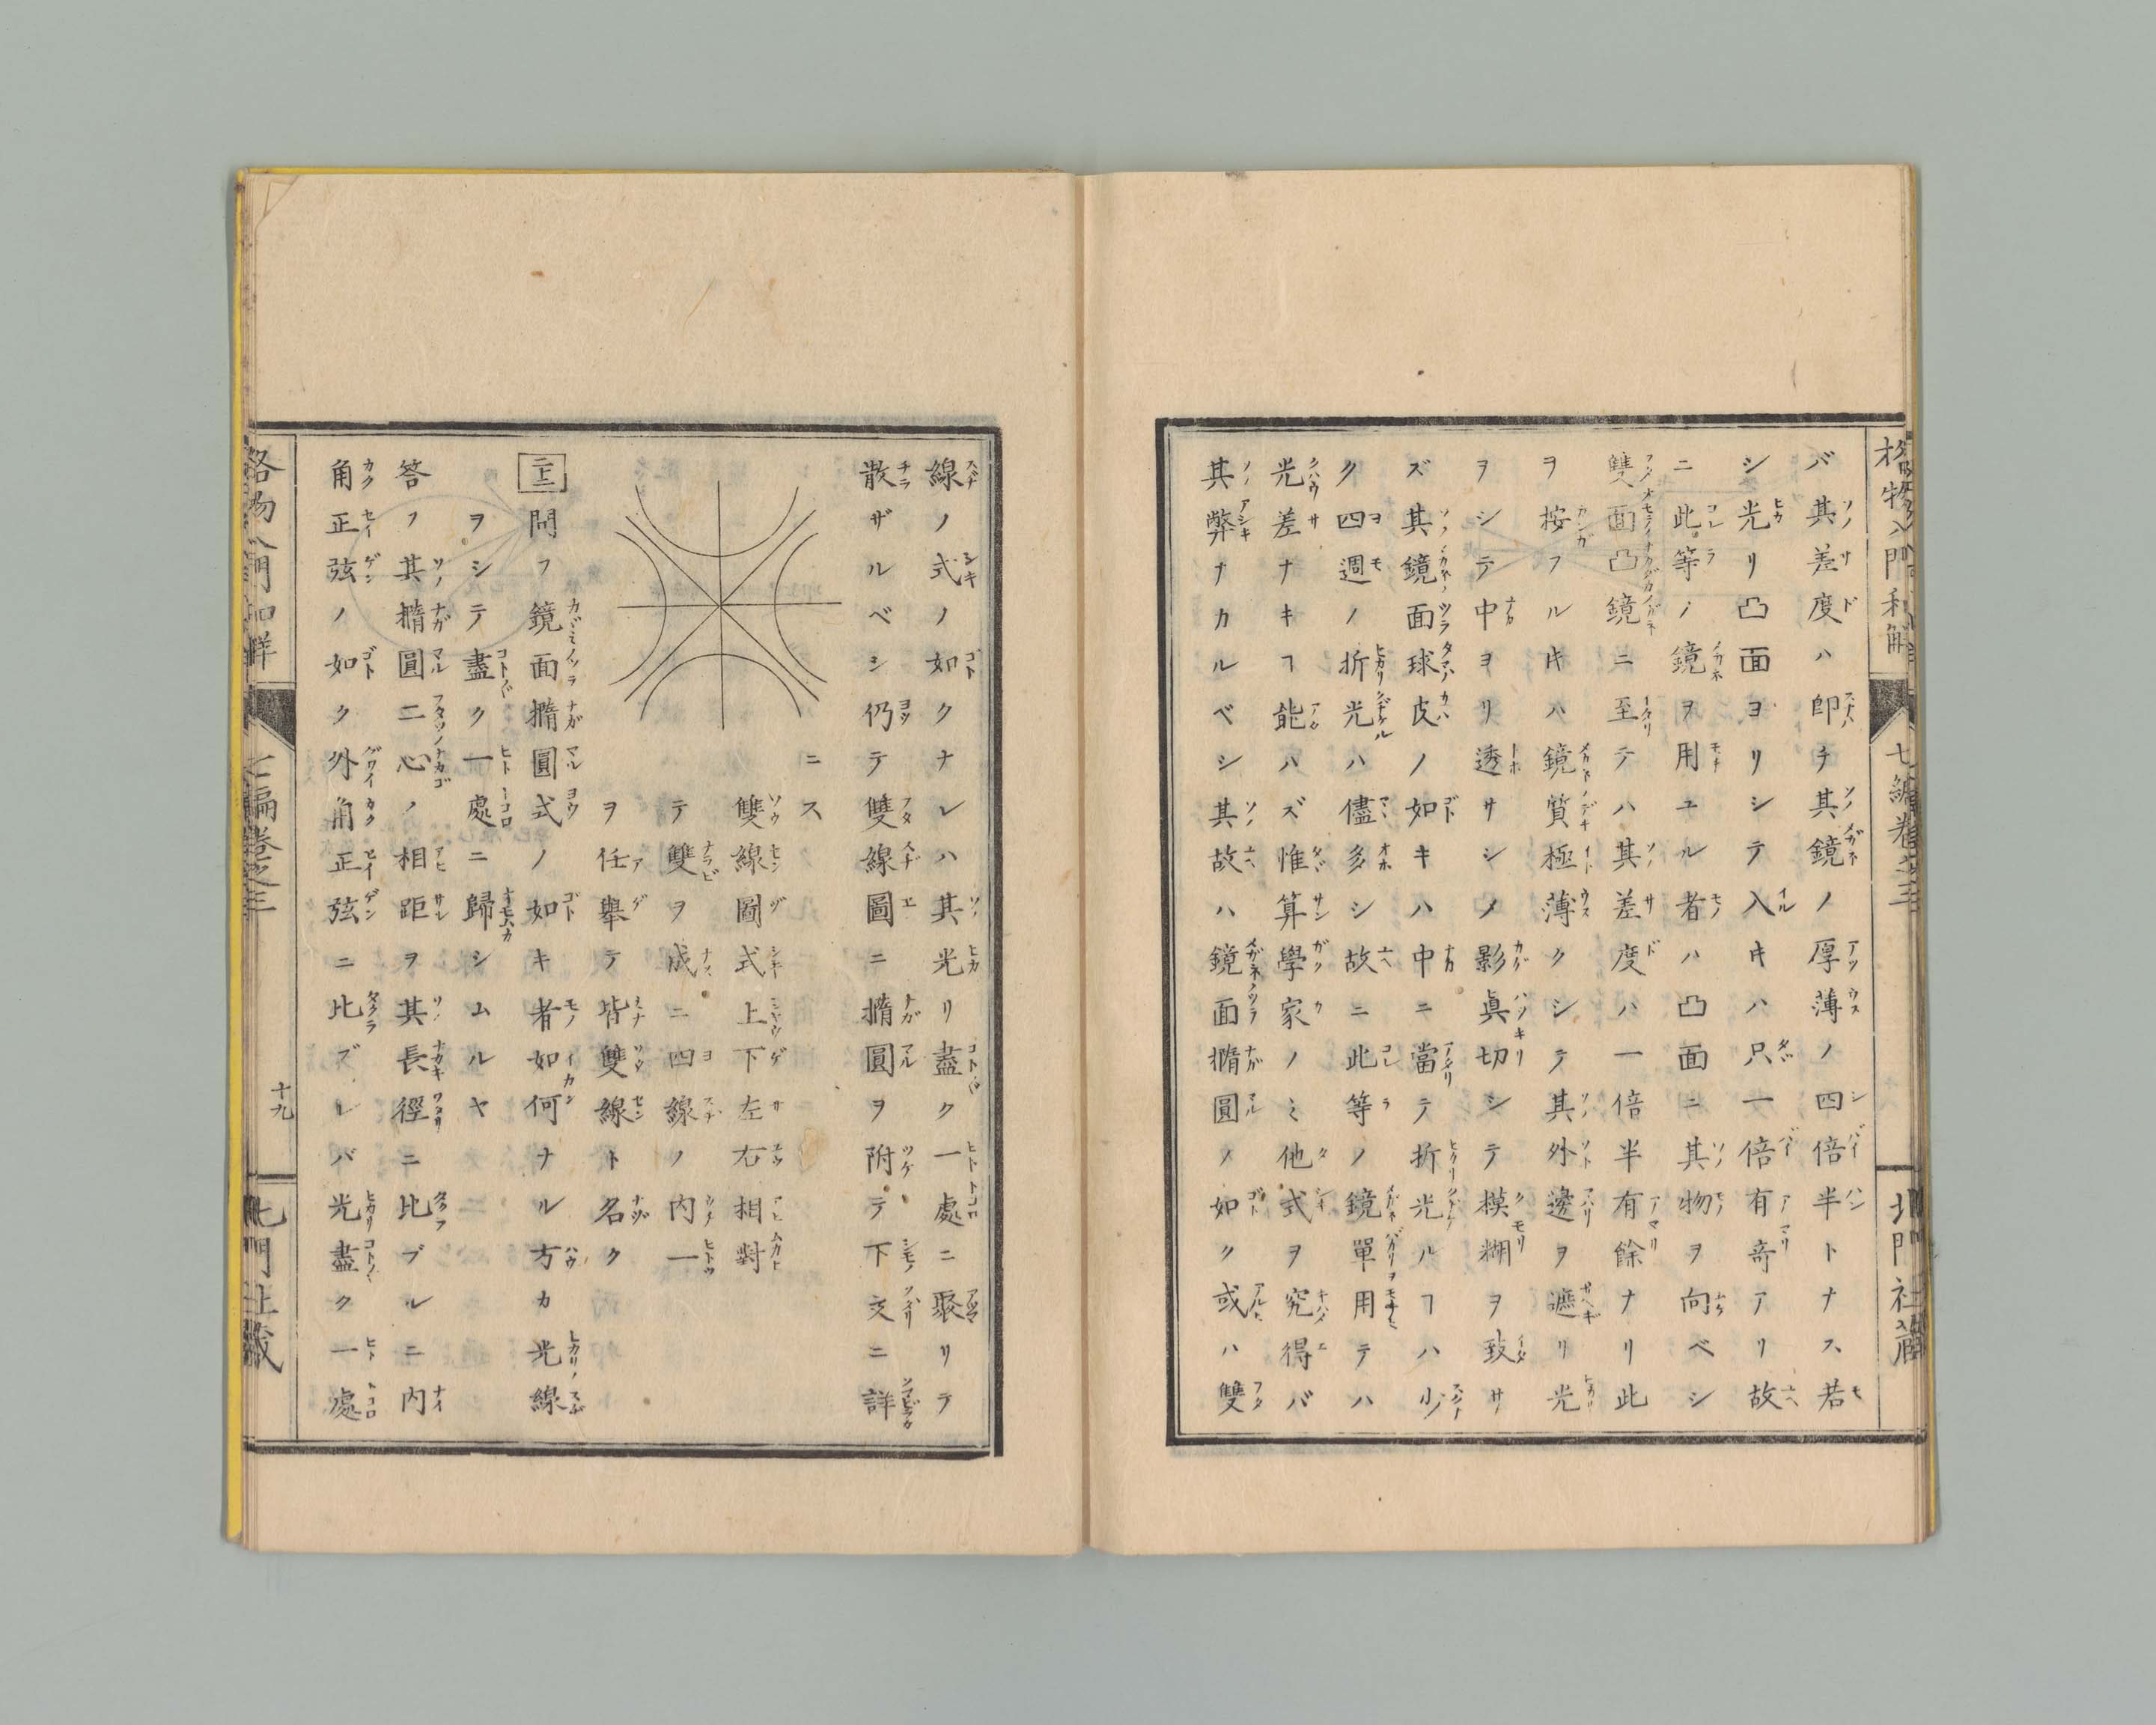 格物入門和解
七編卷之三
北門社藏
バ其差度ハ卽チ其鏡ノ厚薄ノ四倍半トナス若
シ光リ凸面ヨリシテ入𪜈ハ只一倍有奇アリ故
ニ此等ノ鏡ヲ用ユル者ハ凸面ニ其物ヲ向ベシ
雙面凸鏡ニ至テハ其差度ハ一倍半有餘ナリ此
ヲ按フル𪜈ハ鏡質極薄クシテ其外邊ヲ遮リ光
ヲシテ中ヨリ透サシメ影眞切シテ模糊ヲ致サ
ズ其鏡面球皮ノ如キハ中ニ當テ折光ルヿハ少
ク四週ノ折光ハ儘多シ故ニ此等ノ鏡單用テハ
光差ナキヿ能ハズ惟算學家ノミ他式ヲ究得バ
其弊ナカルベシ其故ハ鏡面橢圓ノ如ク或ハ雙
線ノ式ノ如クナレハ其光リ盡ク一處ニ聚リテ
散ザルベシ仍テ雙線圖ニ橢圓ヲ附テ下文ニ詳
ニス
雙線圖式上下左右相對
テ雙ヲ成ニ四線ノ内一
ヲ任擧テ皆雙線ト名ク
二十三 問フ鏡面橢圓式ノ如キ者如何ナル方カ光線
ヲシテ盡ク一處ニ歸シムルヤ
答フ其橢圓二心ノ相距ヲ其長徑ニ比ブルニ内
角正弦ノ如ク外角正弦ニ比ズレバ光盡ク一處
格物入門和解
七編卷之三
十九
北門社藏